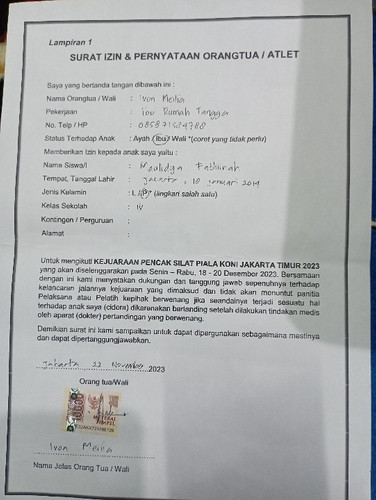 Lampiran 1
SURAT IZIN & PERNYATAAN ORANGTUA / ATLET
Saya yang bertanda tangan dibawah ini :
Nama Orangtua / Wali : Ivon Meilia
Pekerjaan : Ibu Rumah Tangga
No. Telp / HP : 085871534788
Status Terhadap Anak : Ayah / Ibu / Wali *(coret yang tidak perlu)
Memberikan Izin kepada anak saya yaitu :
Nama Siswa/I : Maulidya Fathiirah
Tempat, Tanggal Lahir : Jakarta, 18 Januari 2014
Jenis Kelamin : L / P * (lingkari salah satu)
Kelas Sekolah : IV
Kontingen / Perguruan :
Alamat :
Untuk mengikuti KEJUARAAN PENCAK SILAT PIALA KONI JAKARTA TIMUR 2023
yang akan diselenggarakan pada Senin – Rabu, 18 - 20 Desember 2023. Bersamaan
dengan ini kami menyatakan dukungan dan tanggung jawab sepenuhnya terhadap
kelancaran jalannya kejuaraan yang dimaksud dan tidak akan menuntut panitia
Pelaksana atau Pelatih kepihak berwenang jika seandainya terjadi sesuatu hal
terhadap anak saya (cidera) dikarenakan bertanding setelah dilakukan tindakan medis
oleh aparat (dokter) pertandingan yang berwenang.
Demikian surat ini kami sampaikan untuk dapat dipergunakan sebagaimana mestinya
dan dapat dipertanggungjawabkan.
Jakarta 22 November 2023
Orang tua/Wali
10000
METERAI
TEMPEL
Ivon Meilia
Nama Jelas Orang Tua / Wali